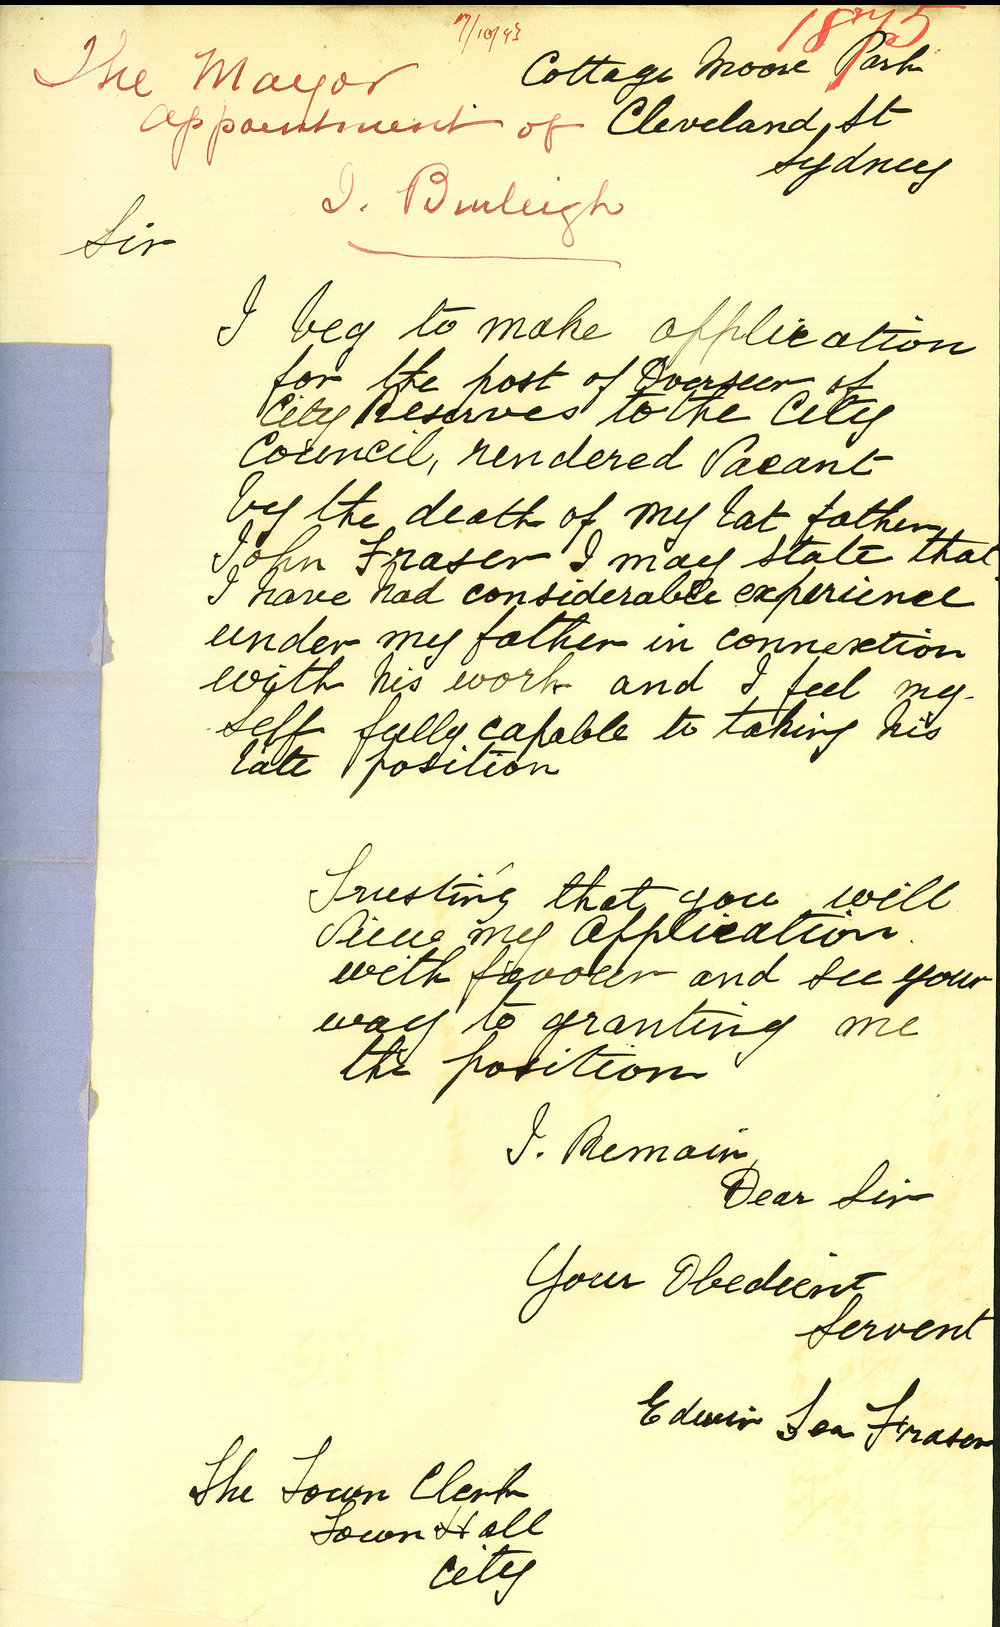 7/10/93
The Mayor
Appointment of
I. Burleigh
Cottage Moore Park
Cleveland St
Sydney
Sir
I beg to make application
for the post of Overseer of
City Reserves to the City
Council, rendered Vacant
by the death of my lat father
John Fraser I may state that
I have had considerable experience
under my father in connextion
with his work and I feel my-
self fully capable to taking his
late position
Trusting that you will
View my Application
with favour and see your
way to granting me
the position
I. Remain
Dear Sir
Your Obedient
Servent
Edwin Fraser
The Town Clerk
Town Hall
City